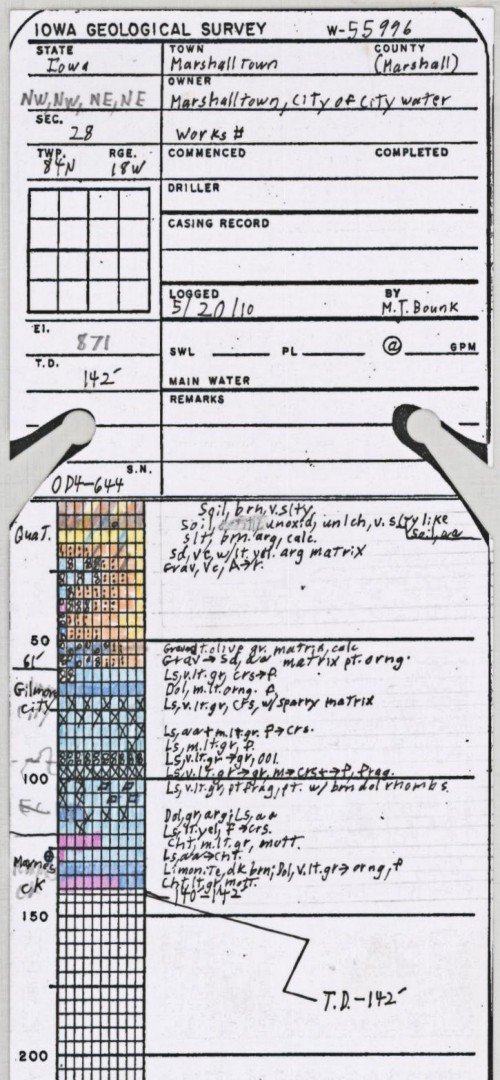 IOWA GEOLOGICAL SURVEY W-55996
STATE TOWN COUNTY
Iowa Marshalltown (Marshall)
OWNER
NW, NW, NE, NE Marshalltown, City of City water
SEC.
28 Works #
TWP. RGE. COMMENCED COMPLETED
84N 18W
DRILLER
CASING RECORD
LOGGED BY
5/20/10 M.T. Bounk
El.
871
SWL PL @ GPM
T.D.
142'
MAIN WATER
REMARKS
S.N.
OD4-644
Soil, brn, v. slty
Soil, unoxid, unlch, v. slty like
Quat. slt, brn, arg, calc. soil, aa
Sd, vc, w/lt. yel. arg matrix
Grav, vc, A→r.
50
lt. olive gr. matrix, calc
61' Grav→Sd, aa matrix pt. orng.
Ls, v. lt. gr, crs→f
Gilmore Dol, m. lt. orng. f,
City Ls, v. lt. gr, crs, w/sparry matrix
Ls, aa + m. lt. gr. f→crs.
Ls, m. lt. gr, f.
Ls, v. lt. gr→gr, ool.
100 Ls, v. lt. gr→gr, m→crs+→f, frag.
Ls, v. lt. gr, pt frag, pt. w/ brn dol rhombs.
Dol, gr, arg; Ls, aa
Ls, lt. yel, f→crs.
Cht, m. lt. gr, mott.
Maynes Ls, aa→cht.
Ck Limonite, dk brn; Dol, v. lt. gr→orng, f
Cht, lt. gr, mott.
140-142'
150
T.D.-142'
200